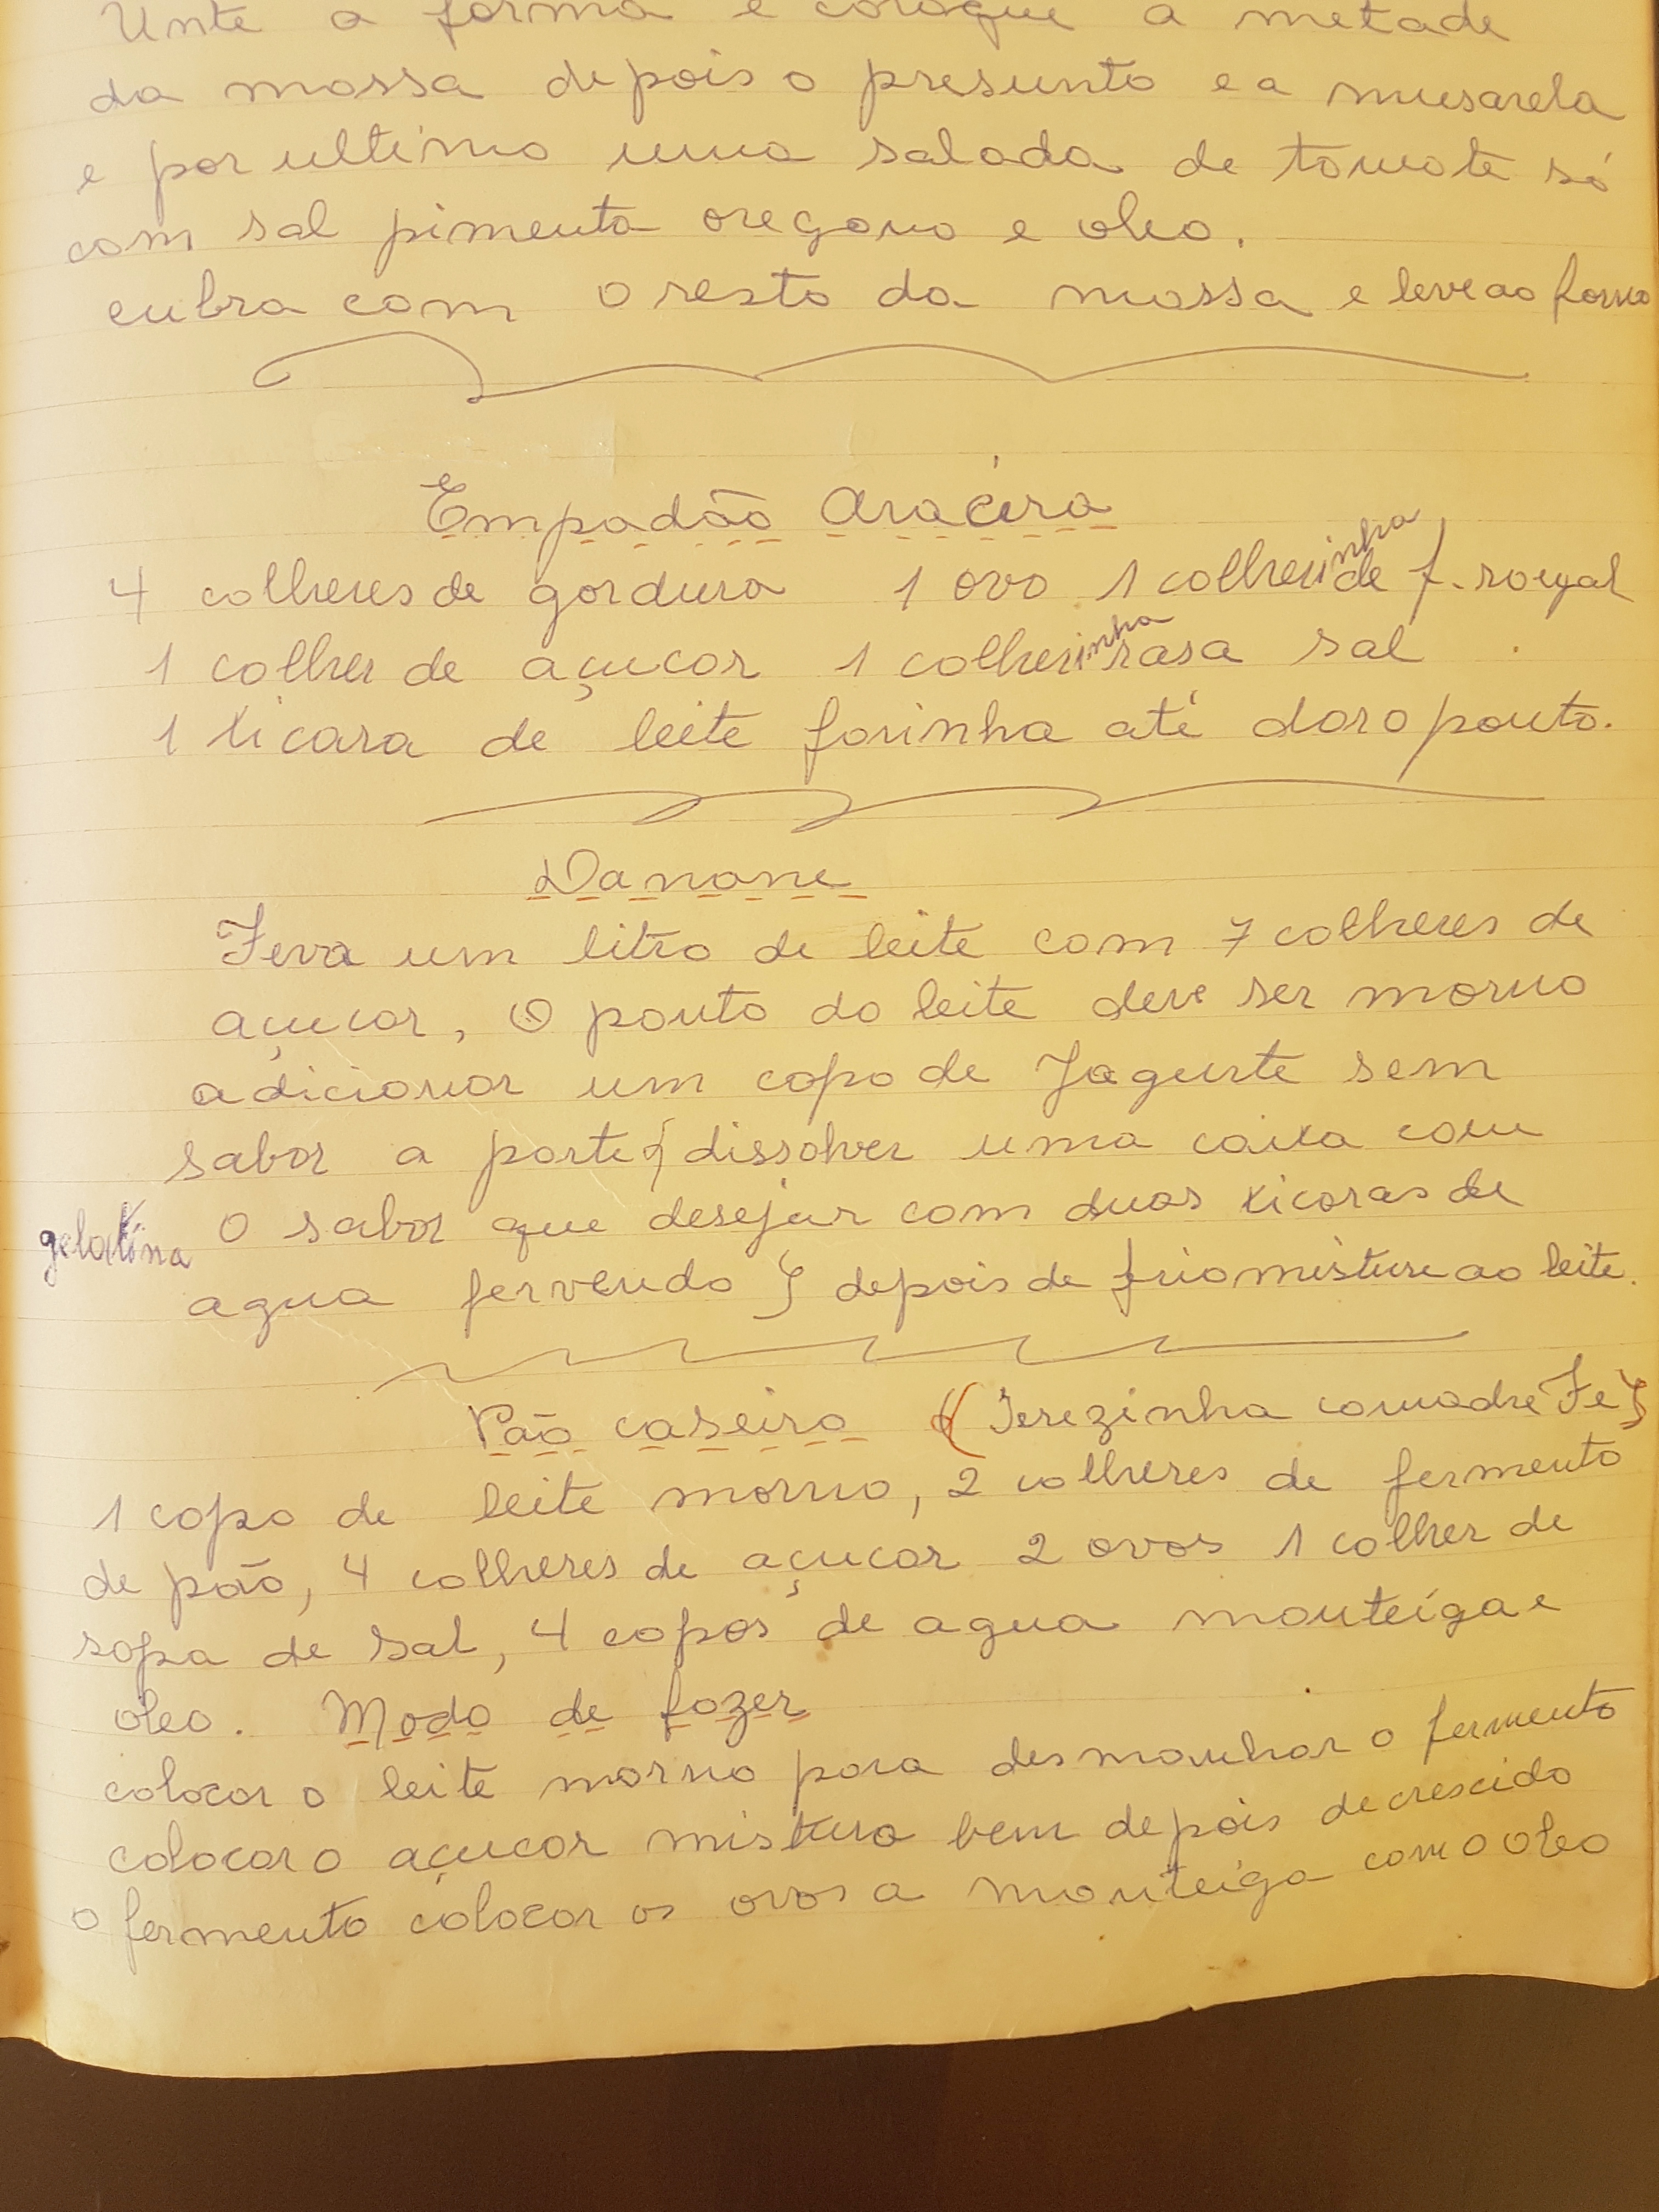 Unte a forma e coloque a metade
da massa depois o presunto e a musarela
e por ultimo uma salada de tomate só
com sal pimenta oregano e oleo.
cubra com o resto da massa e leve ao forno
Empadão Aracira
4 colheres de gordura 1 ovo 1 colherinha de f. royal
1 colher de açucar 1 colherinha rasa sal
1 xicara de leite farinha até dar o ponto.
Danone
Ferva um litro de leite com 7 colheres de
açucar, O ponto do leite deve ser morno
adicionar um copo de Jogurte sem
sabor a parte { dissolver uma caixa com
gelatina o sabor que desejar com duas xicaras de
agua fervendo } depois de frio misture ao leite.
Pão caseiro (Terezinha comadre Fe)
1 copo de leite morno, 2 colheres de fermento
de pão, 4 colheres de açucar 2 ovos 1 colher de
sopa de sal, 4 copos de agua manteiga e
oleo. Modo de fazer
colocar o leite morno para desmanchar o fermento
colocar o açucar mistura bem depois de crescido
o fermento colocar os ovos a manteiga com o oleo